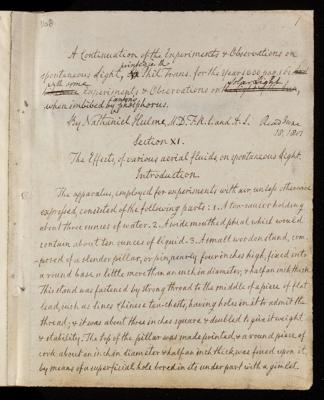 168
1
A Continuation of the Experiments & Observations on
spontaneous Light, printed in the Phil. Trans. for the year 1800 pag. 161
with some experiments & Observations on Solar Light
when imbibed by Canton's phosphorus.
By Nathaniel Hulme, M.D. F.R.S. and A.S. Read
18, 1801
Section XI.
The Effects of various aerial fluids on spontaneous light.
Introduction.
The apparatus, employed for experiments with air, unless otherwise
expressed, consisted of the following parts: 1. A tea-saucer holding
about three ounces of water. 2. A wide mouthed phial which would
contain about ten ounces of liquid. 3. A small wooden stand, com-
posed of a slender pillar, or pin, nearly four inches high, fixed into
a round base, a little more than an inch in diameter, & half an inch thick.
This stand was fastened by strong thread to the middle of a piece of flat
lead, such as lines Chinese tea-chests, having holes in it to admit the
thread; & it was about three inches square & doubled to give it weight
& stability. The top of the pillar was made pointed, & a round piece of
cork about an inch in diameter & half an inch thick was fixed upon it,
by means of a superficial hole bored in its under part with a gimlet.